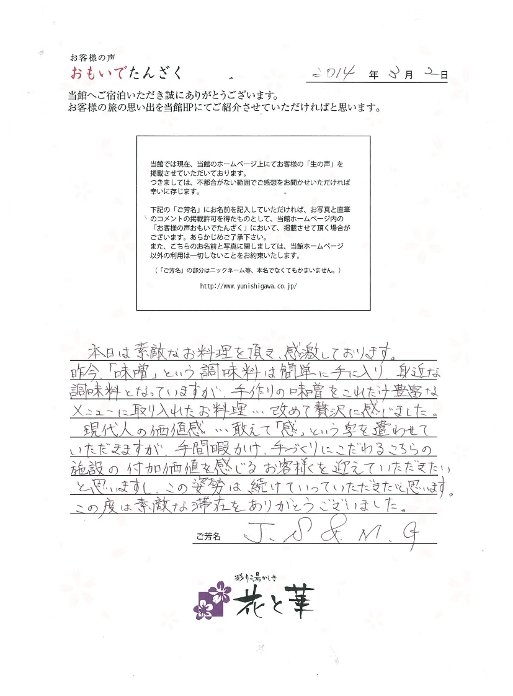 お客様の声
おもいでたんざく
2014 年 3 月 2 日
当館へご宿泊いただき誠にありがとうございます。
お客様の旅の思い出を当館HPにてご紹介させていただければと思います。
当館では現在、当館のホームページ上にてお客様の「生の声」を
掲載させていただいております。
つきましては、不都合がない範囲でご感想をお聞かせいただければ
幸いに存じます。
下記の「ご芳名」にお名前を記入していただければ、お写真と直筆
のコメントの掲載許可を得たものとして、当館ホームページ内の
「お客様の声おもいでたんざく」において、掲載させて頂く場合が
ございます。あらかじめご了承下さい。
また、こちらのお名前と写真に関しましては、当館ホームページ
以外の利用は一切しないことをお約束いたします。
(「ご芳名」の部分はニックネーム等、本名でなくてもかまいません。)
http://www.yunishigawa.co.jp/
本日は素敵なお料理を頂き、感激しております。
昨今「味噌」という調味料は簡単に手に入り、身近な
調味料となっていますが、手作りの味噌をこれだけ豊富な
メニューに取り入れたお料理…改めて贅沢に感じました。
現代人の価値感…敢えて「感」という字を遣わせて
いただきますが、手間暇かけ、手づくりにこだわるこちらの
施設の付加価値を感じるお客様を迎えていただきたい
と思いますし、この姿勢は続けていっていただきたいと思います。
この度は素敵な滞在をありがとうございました。
ご芳名 J. S & M. G
花と華